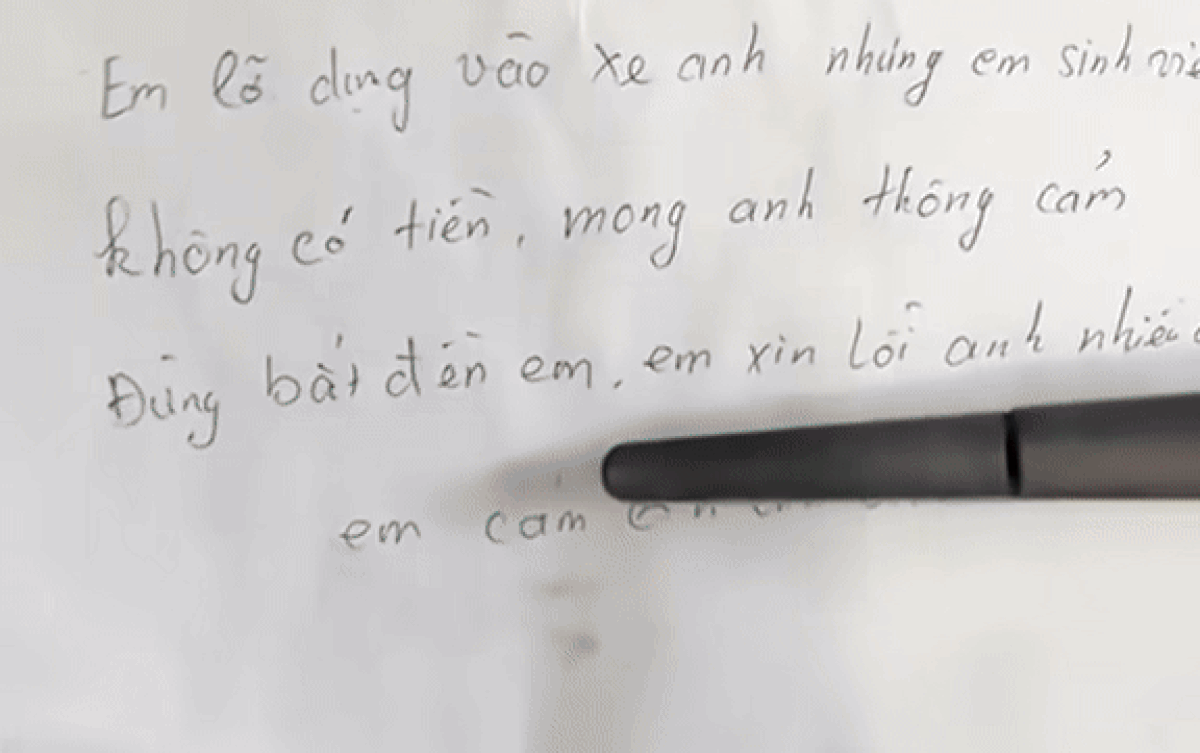 Em lỡ dụng vào xe anh nhưng em sinh
không có tiền, mong anh thông cảm
Đừng bắt đền em, em xin lỗi anh
em cảm